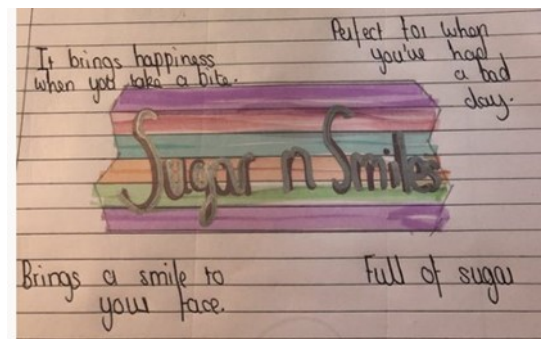 It brings happiness
when you take a bite.
Perfect for when
you've had
a bad
day.
Sugar n Smiles
Brings a smile to
your face.
Full of sugar